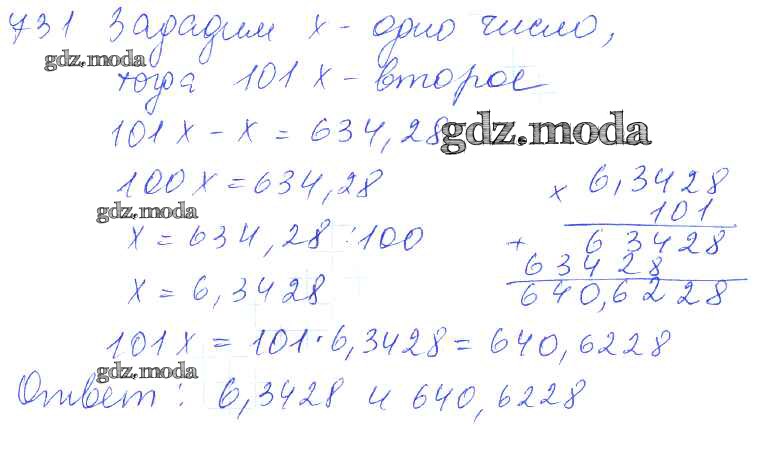 731 Зададим x - одно число,
gdz.moda
тогда 101x - второе
101x - x = 634,28
gdz.moda
100x = 634,28
gdz.moda
x = 634,28 : 100
x = 6,3428
× 6,3428
101
+ 63428
63428
640,6228
101x = 101 · 6,3428 = 640,6228
gdz.moda
Ответ: 6,3428 и 640,6228